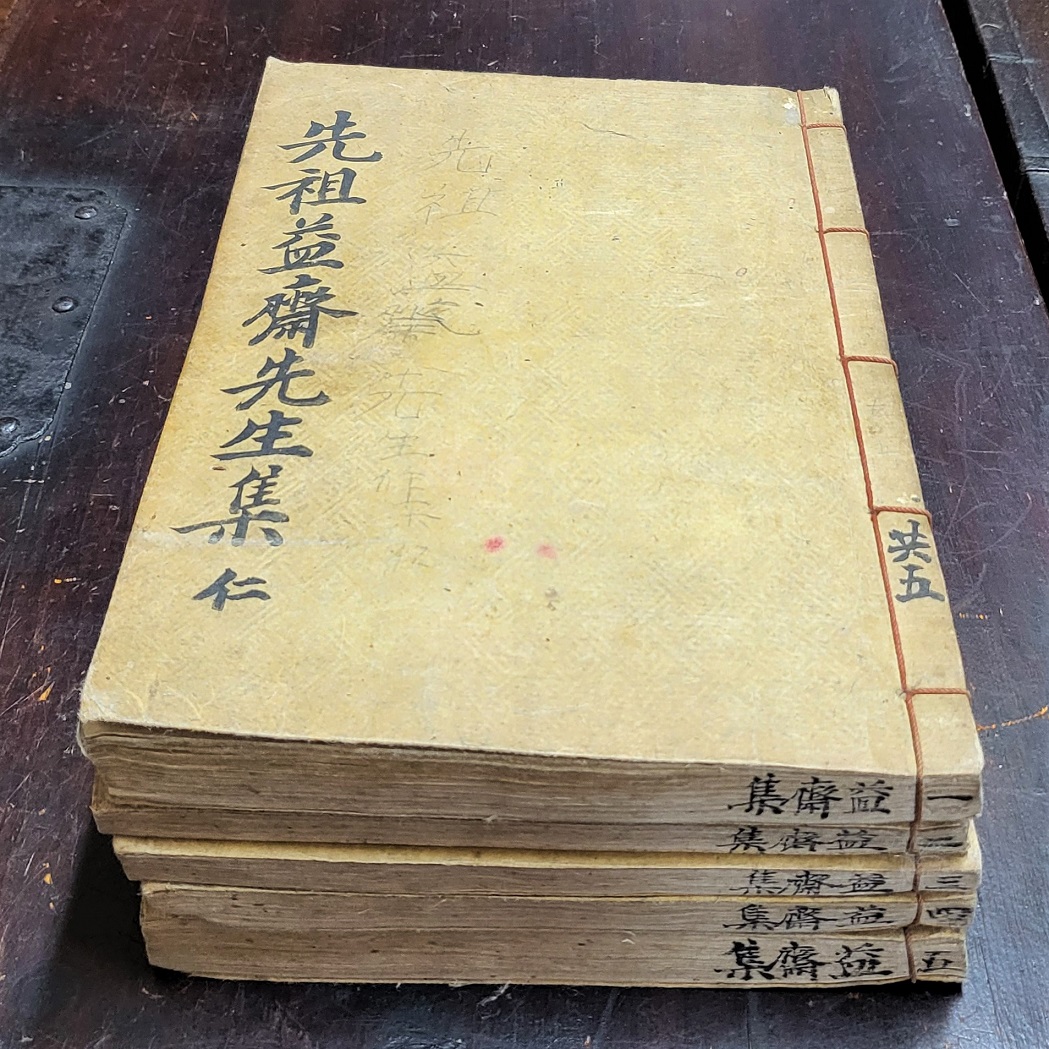 先祖益齋先生集 仁
先祖益齋先生
共五
一 益齋集
二 益齋集
三 益齋集
四 益齋集
五 益齋集